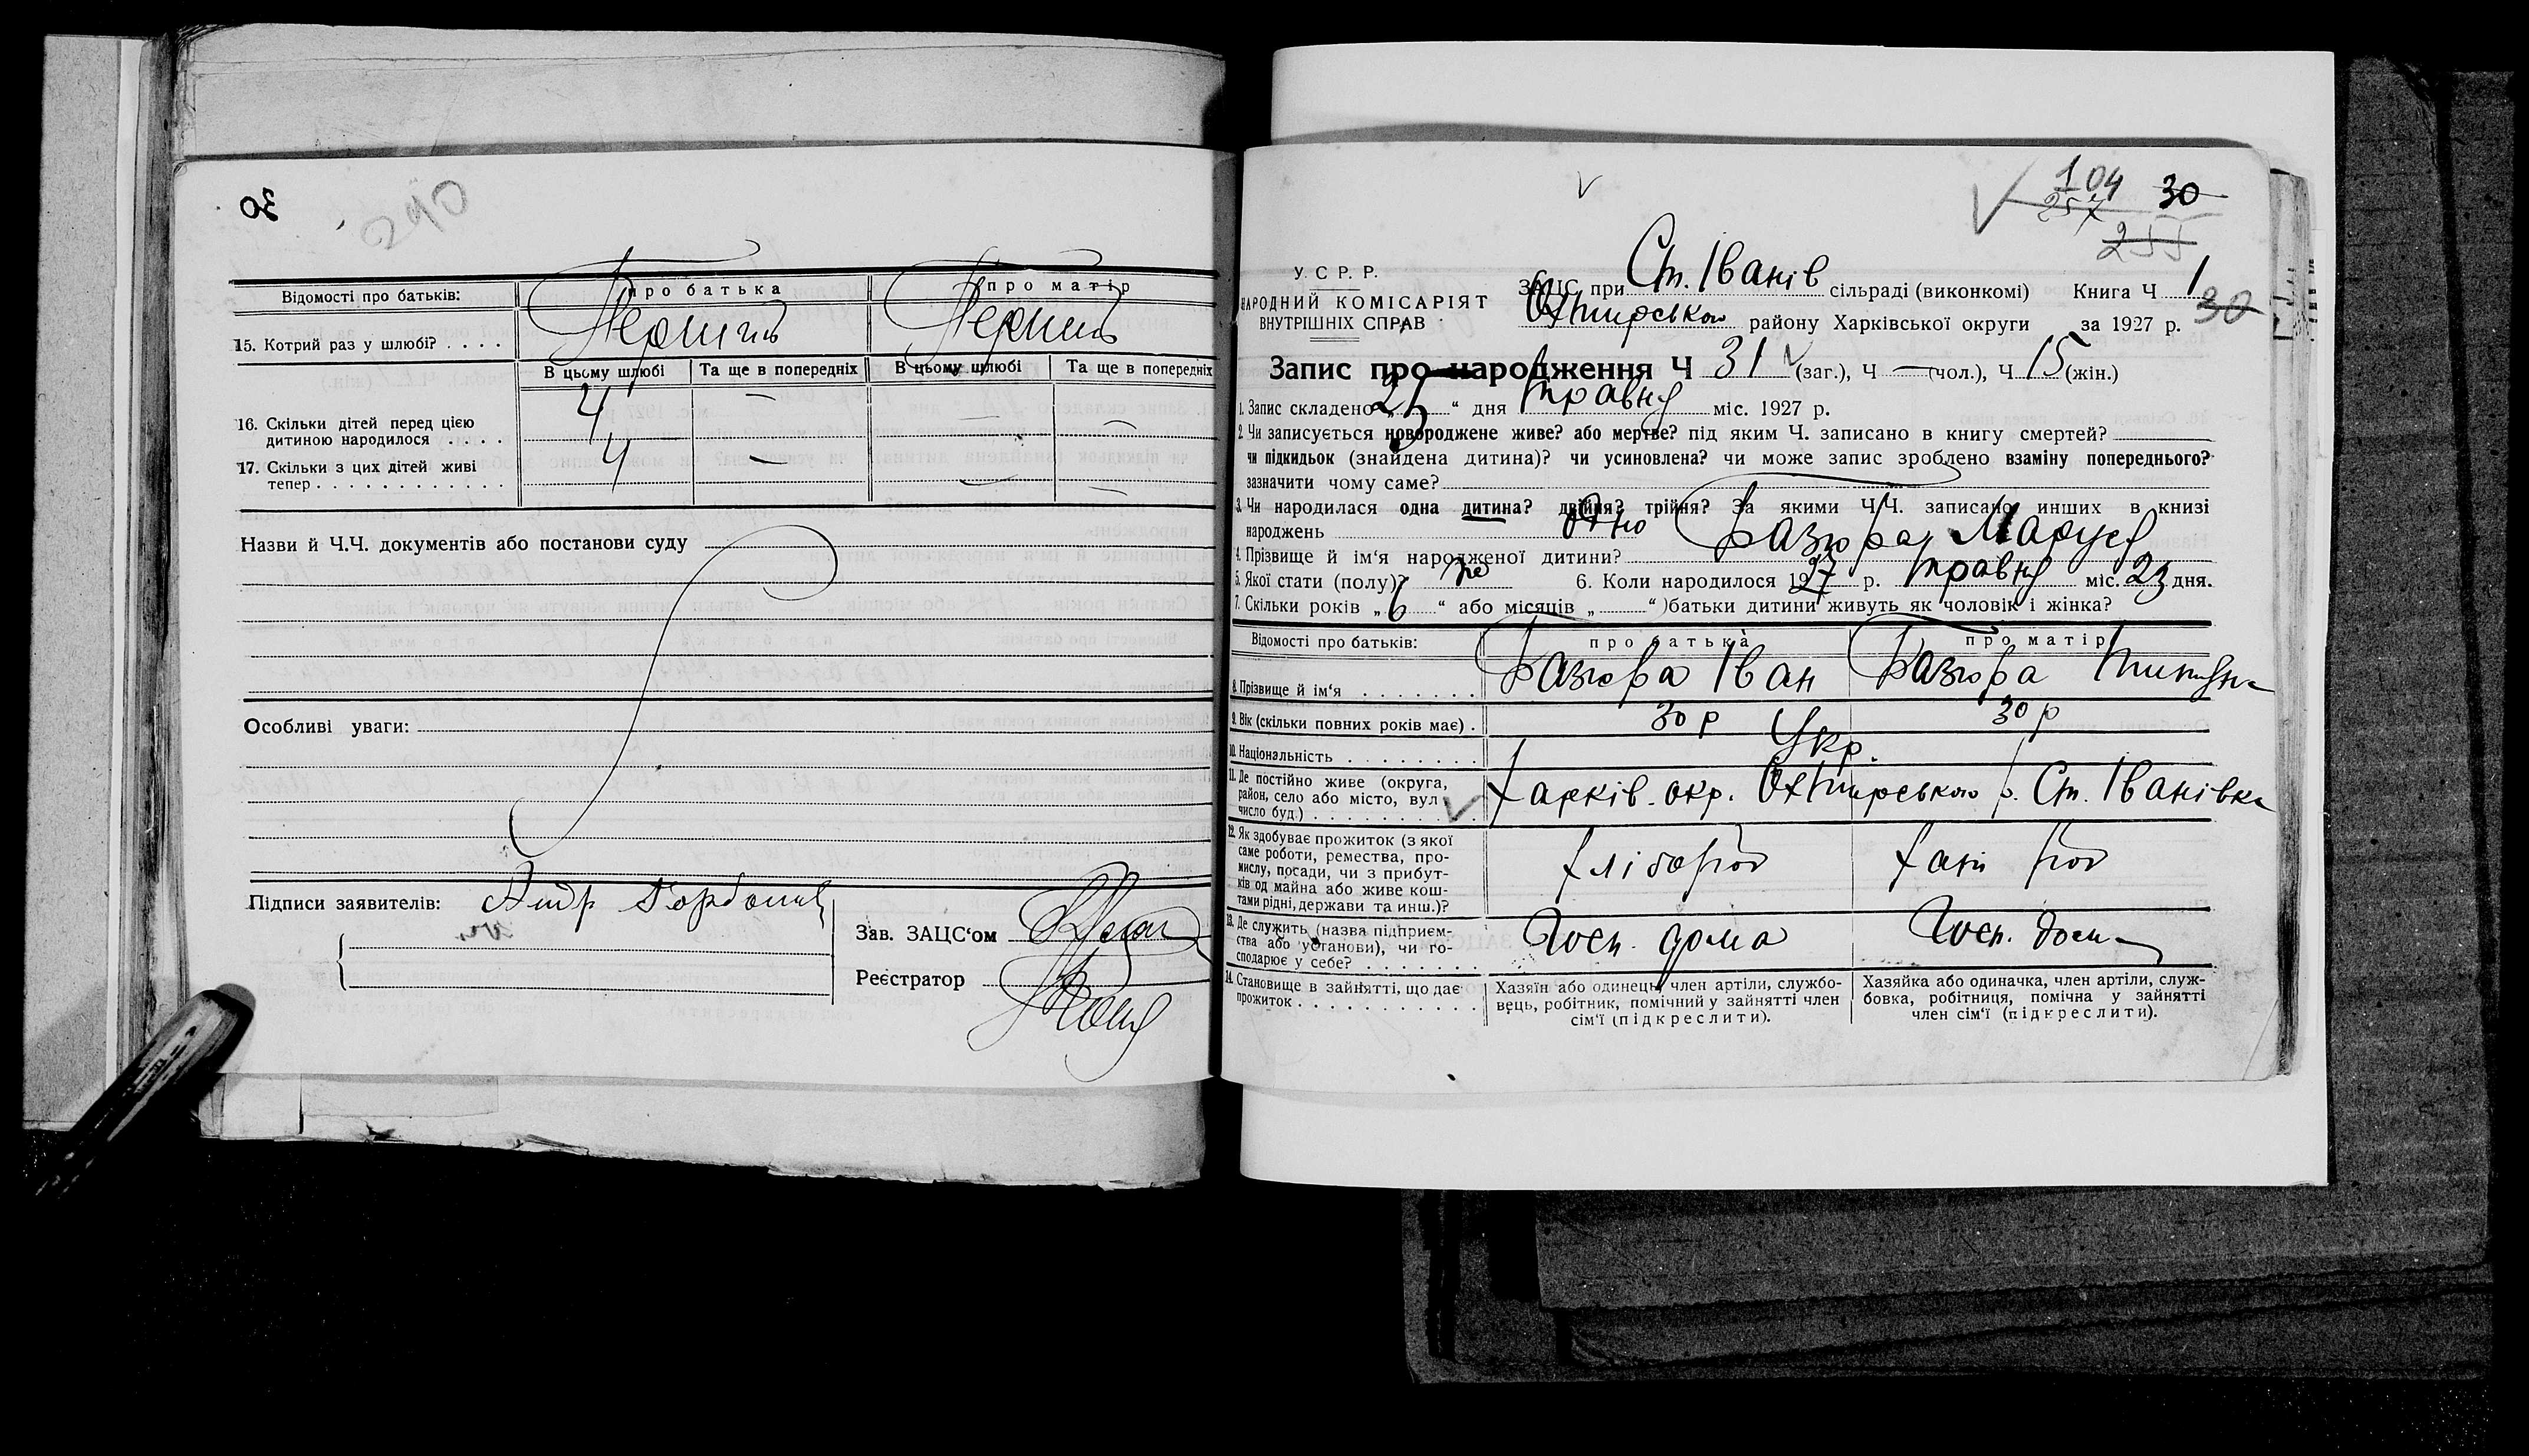 30
290
Відомості про батьків: про батька про матір
15. Котрий раз у шлюбі? . . . . Перший Перший
В цьому шлюбі Та ще в попередніх В цьому шлюбі Та ще в попередніх
16. Скільки дітей перед цією
дитиною народилося . . . . 4 — — —
17. Скільки з цих дітей живі
тепер . . . . . . . . . . . . 4 — — —
Назви й Ч.Ч. документів або постанови суду
Особливі уваги:
Підписи заявителів: Андр
Зав. ЗАЦС'ом
Реєстратор
104 30
257
255
У. С. Р. Р.
НАРОДНИЙ КОМІСАРІЯТ
ВНУТРІШНІХ СПРАВ
ЗАЦС при Ст. Іванів сільраді (виконкомі) Книга Ч 1
30
Охтирського району Харківської округи за 1927 р.
Запис про народження Ч 31 (заг.), Ч — (чол.), Ч 15 (жін.)
1. Запис складено „25“ дня травня міс. 1927 р.
2. Чи записується новороджене живе? або мертве? під яким Ч. записано в книгу смертей?
чи підкидьок (знайдена дитина)? чи усиновлена? чи може запис зроблено взаміну попереднього?
зазначити чому саме?
3. Чи народилася одна дитина? двійня? трійня? За якими Ч.Ч. записано инших в книзі
народжень одно
4. Прізвище й ім'я народженої дитини? Базюра Маруся
5. Якої стати (полу)? же 6. Коли народилося 1927 р. травня міс. 23 дня.
7. Скільки років „6“ або місяців „ “ )батьки дитини живуть як чоловік і жінка?
Відомості про батьків: про батька про матір
8. Прізвище й ім'я . . . . . . . Базюра Іван Базюра
9. Вік (скільки повних років має) . 30 р 30 р
10. Національність . . . . . . . . Укр.
11. Де постійно живе (округа,
район, село або місто, вул.
число буд.) . . . . . . . . . Харків. окр. Охтирського р. Ст. Іванівка
12. Як здобуває прожиток (з якої
саме роботи, ремества, про-
мислу, посади, чи з прибут-
ків од майна або живе кош-
тами рідні, держави та инш.)? хлібороб хлі роб
13. Де служить (назва підприєм-
ства або установи), чи го-
сподарює у себе? . . . . . . . Госп. дома Госп. дом
14. Становище в зайнятті, що дає
прожиток . . . . . . . . . . .
Хазяїн або одинець, член артіли, службо-
вець, робітник, помічний у зайнятті член
сім'ї (підкреслити).
Хазяйка або одиначка, член артіли, служ-
бовка, робітниця, помічна у зайнятті
член сім'ї (підкреслити).